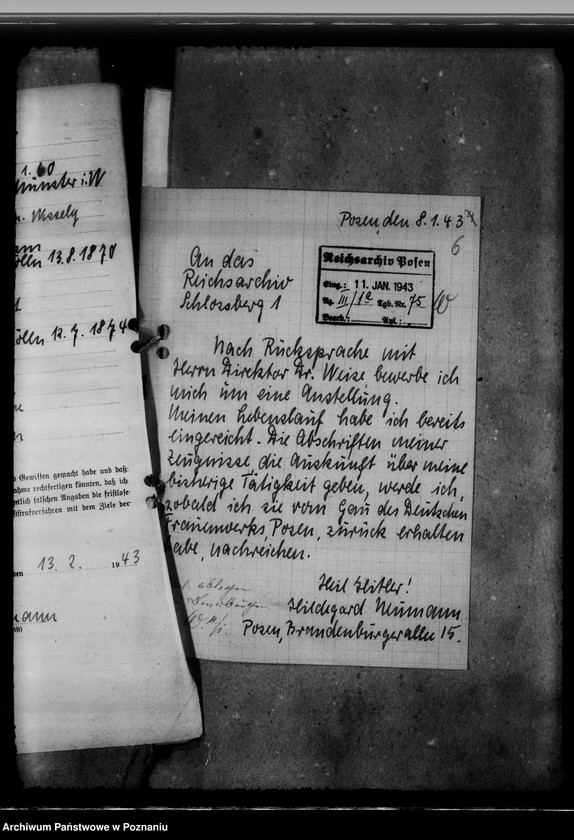 1.60
Münster i. W
Wesely
13.8.1870
12.7.1874
Gewissen gemacht habe und daß
rechtfertigen könnten, daß ich
falschen Angaben die fristlose
mit dem Ziele der
13. 2. 1943
mann
Posen, den 8.1.43
6
An das
Reichsarchiv
Schlossberg 1
Reichsarchiv Posen
Eing.: 11. JAN. 1943
Ag. III/1a Tgb. Nr. 75
Bearb.: Anl.:
Nach Rücksprache mit
Herrn Direktor Dr. Weise bewerbe ich
mich um eine Anstellung.
Meinen Lebenslauf habe ich bereits
eingereicht. Die Abschriften meiner
Zeugnisse, die Auskunft über meine
bisherige Tätigkeit geben, werde ich,
sobald ich sie vom Gau des Deutschen
Frauenwerks, Posen, zurück erhalten
habe, nachreichen.
Heil Hitler!
Hildegard Neumann
Posen, Brandenburgerallee 15.
Archiwum Państwowe w Poznaniu